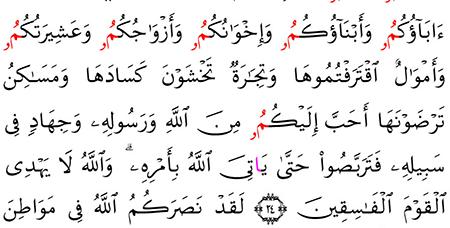 ءَابَآؤُكُمُۥ وَأَبْنَآؤُكُمُۥ وَإِخْوَٰنُكُمُۥ وَأَزْوَٰجُكُمُۥ وَعَشِيرَتُكُمُۥ
وَأَمْوَٰلٌ ٱقْتَرَفْتُمُوهَا وَتِجَٰرَةٌ تَخْشَوْنَ كَسَادَهَا وَمَسَٰكِنُ
تَرْضَوْنَهَا أَحَبَّ إِلَيْكُمُۥ مِنَ ٱللَّهِ وَرَسُولِهِۦ وَجِهَادٍ فِى
سَبِيلِهِۦ فَتَرَبَّصُوا۟ حَتَّىٰ يَاتِىَ ٱللَّهُ بِأَمْرِهِۦ ۗ وَٱللَّهُ لَا يَهْدِى
ٱلْقَوْمَ ٱلْفَٰسِقِينَ ۝٢٤ لَقَدْ نَصَرَكُمُ ٱللَّهُ فِى مَوَاطِنَ